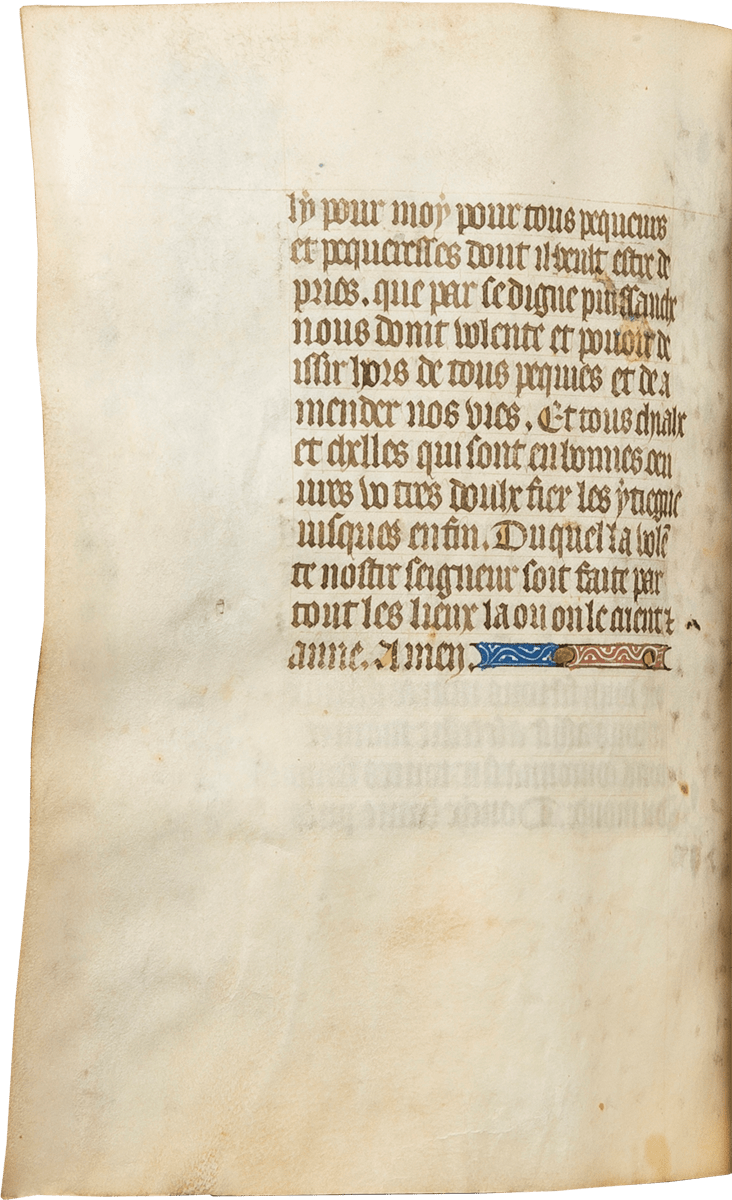 ly pour moy pour tous pequeurs
et pequeresses dont il veult estre de
pries. que par se digne puissanche
nous doinst volente et pouoir de
issir hors de tous pequies et de a
mender nos vies. Et tous chialx
et chelles qui sont en bonnes oeu
ures vo tres doulx fiex les y tiegne
iusques en fin. Duquel la volē
te nostre seigneur soit faite par
tout les lieux la ou on le crient ⁊
aime. Amen.